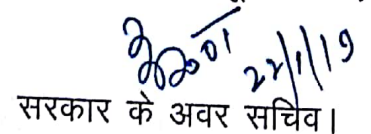 22/1/19
सरकार के अवर सचिव।